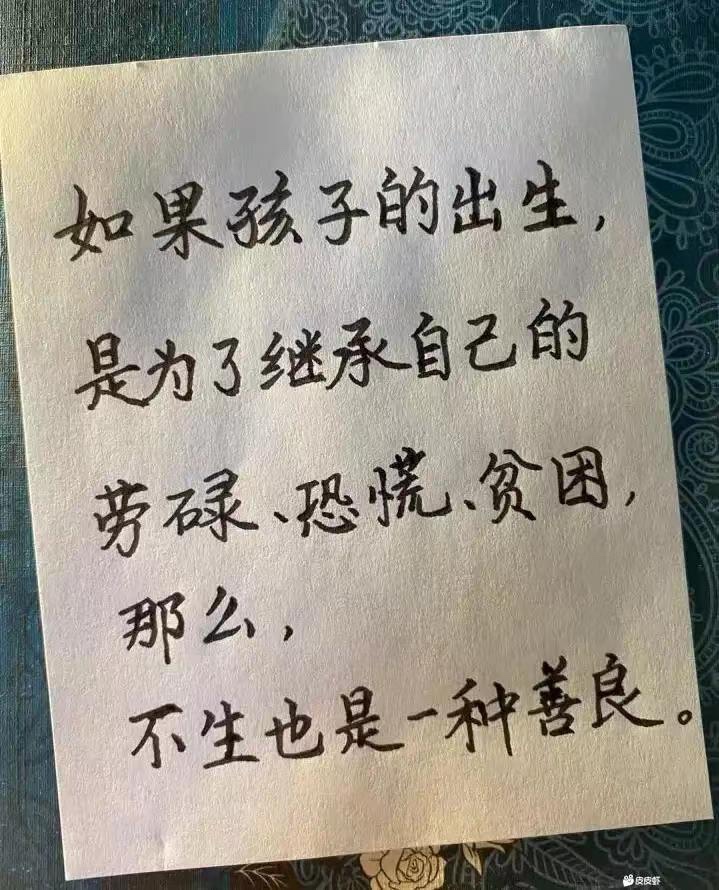 如果孩子的出生，
是为了继承自己的
劳碌、恐慌、贫困，
那么，
不生也是一种善良。
皮皮虾